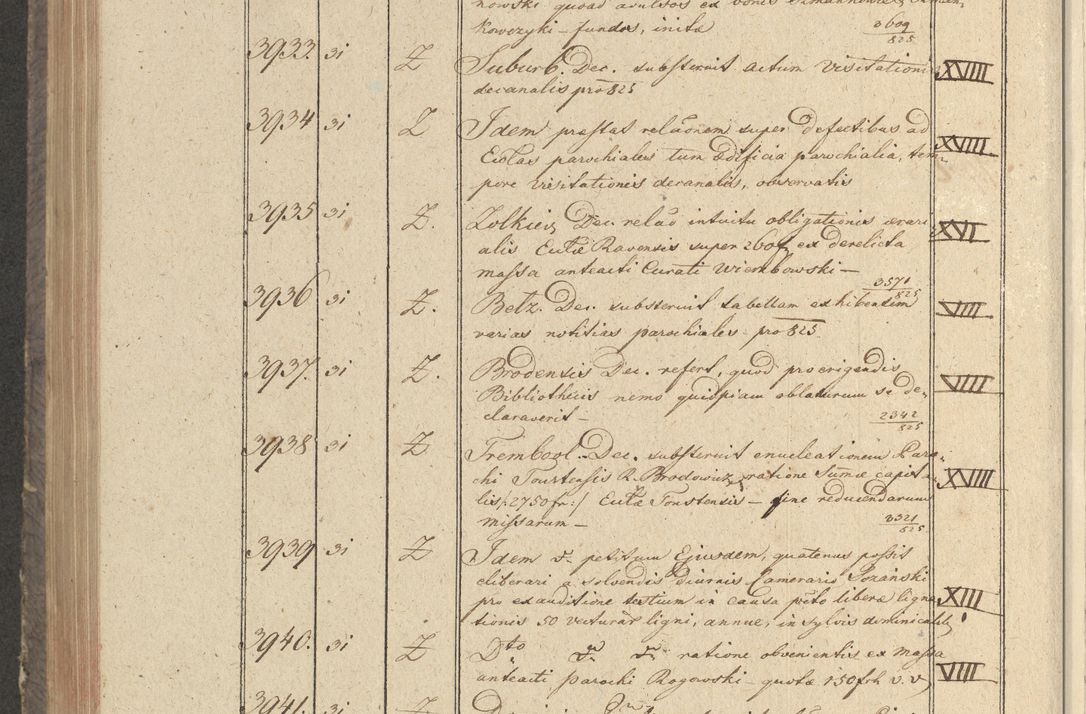 nowski quoad avulsos ex bonis
kowczyki – fundos, inita 3609/825
3933. 31 Z Suburb. Dec. substernit actum Visitationis XVIII
decanalis pro 825
3934 31 Z Idem præstat relaõnem super defectibus ad XVIII
Ecclas parochiales tum ædificia parochialia, tem-
pore Visitationis decanalis, observatis
3935 31 Z. Zolkiev. Dec. relaõ intuitu obligationis ærari- XVI
alis Eccliæ Ravensis super 260 f ex derelicta
massa anteacti Curati Wierzbowski – 3571/825
3936 31 Z. Belz. Dec. substernit tabellam exhibentem VIII
varias notitias parochiales pro 825.
3937. 31 Z. Brodensis Dec. refert, quod pro erigendis VIIII
Bibliothecis nemo quidpiam oblaturum se de-
claraverit – 2342/825
3938 31 Z Trembowl. Dec. substernit enucleationem Paro-
chi Toustensis R. Brodowicz, ratione Summæ capita- XVIII
lis /: 2750 fr :/ Eccliæ Toustensis – fine reducendarum
missarum – 2321/825
3939 31 Z Idem dº petitum Ejusdem, quatenus possit
eliberari a solvendis Diurnis Camerario
pro exauditione testium in causa pcto liberæ ligna- XIII
tionis 50 vecturar ligni, annue, in sylvis dominicalib
3940. 31 Z Dto dº dº ratione obvenientis ex massa
anteacti parochi Rogowski – quotæ 150 frh v. v. VIII
3941. 31 Z